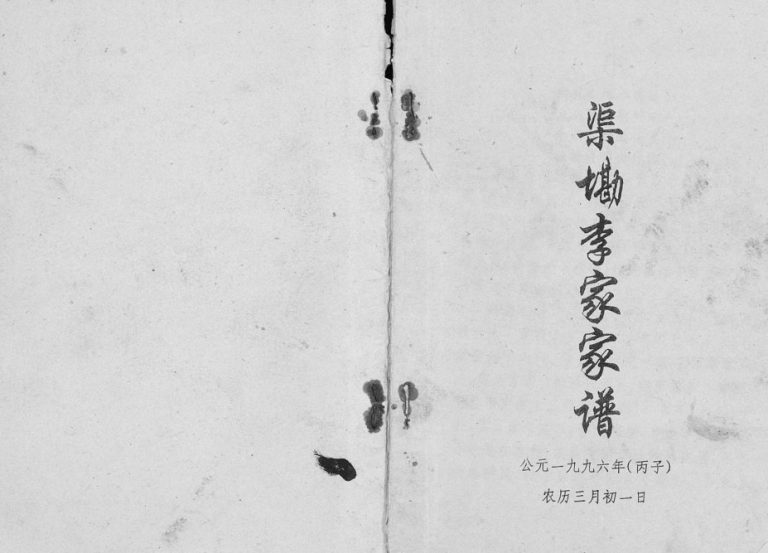 渠墈李家家谱
公元一九九六年(丙子)
农历三月初一日